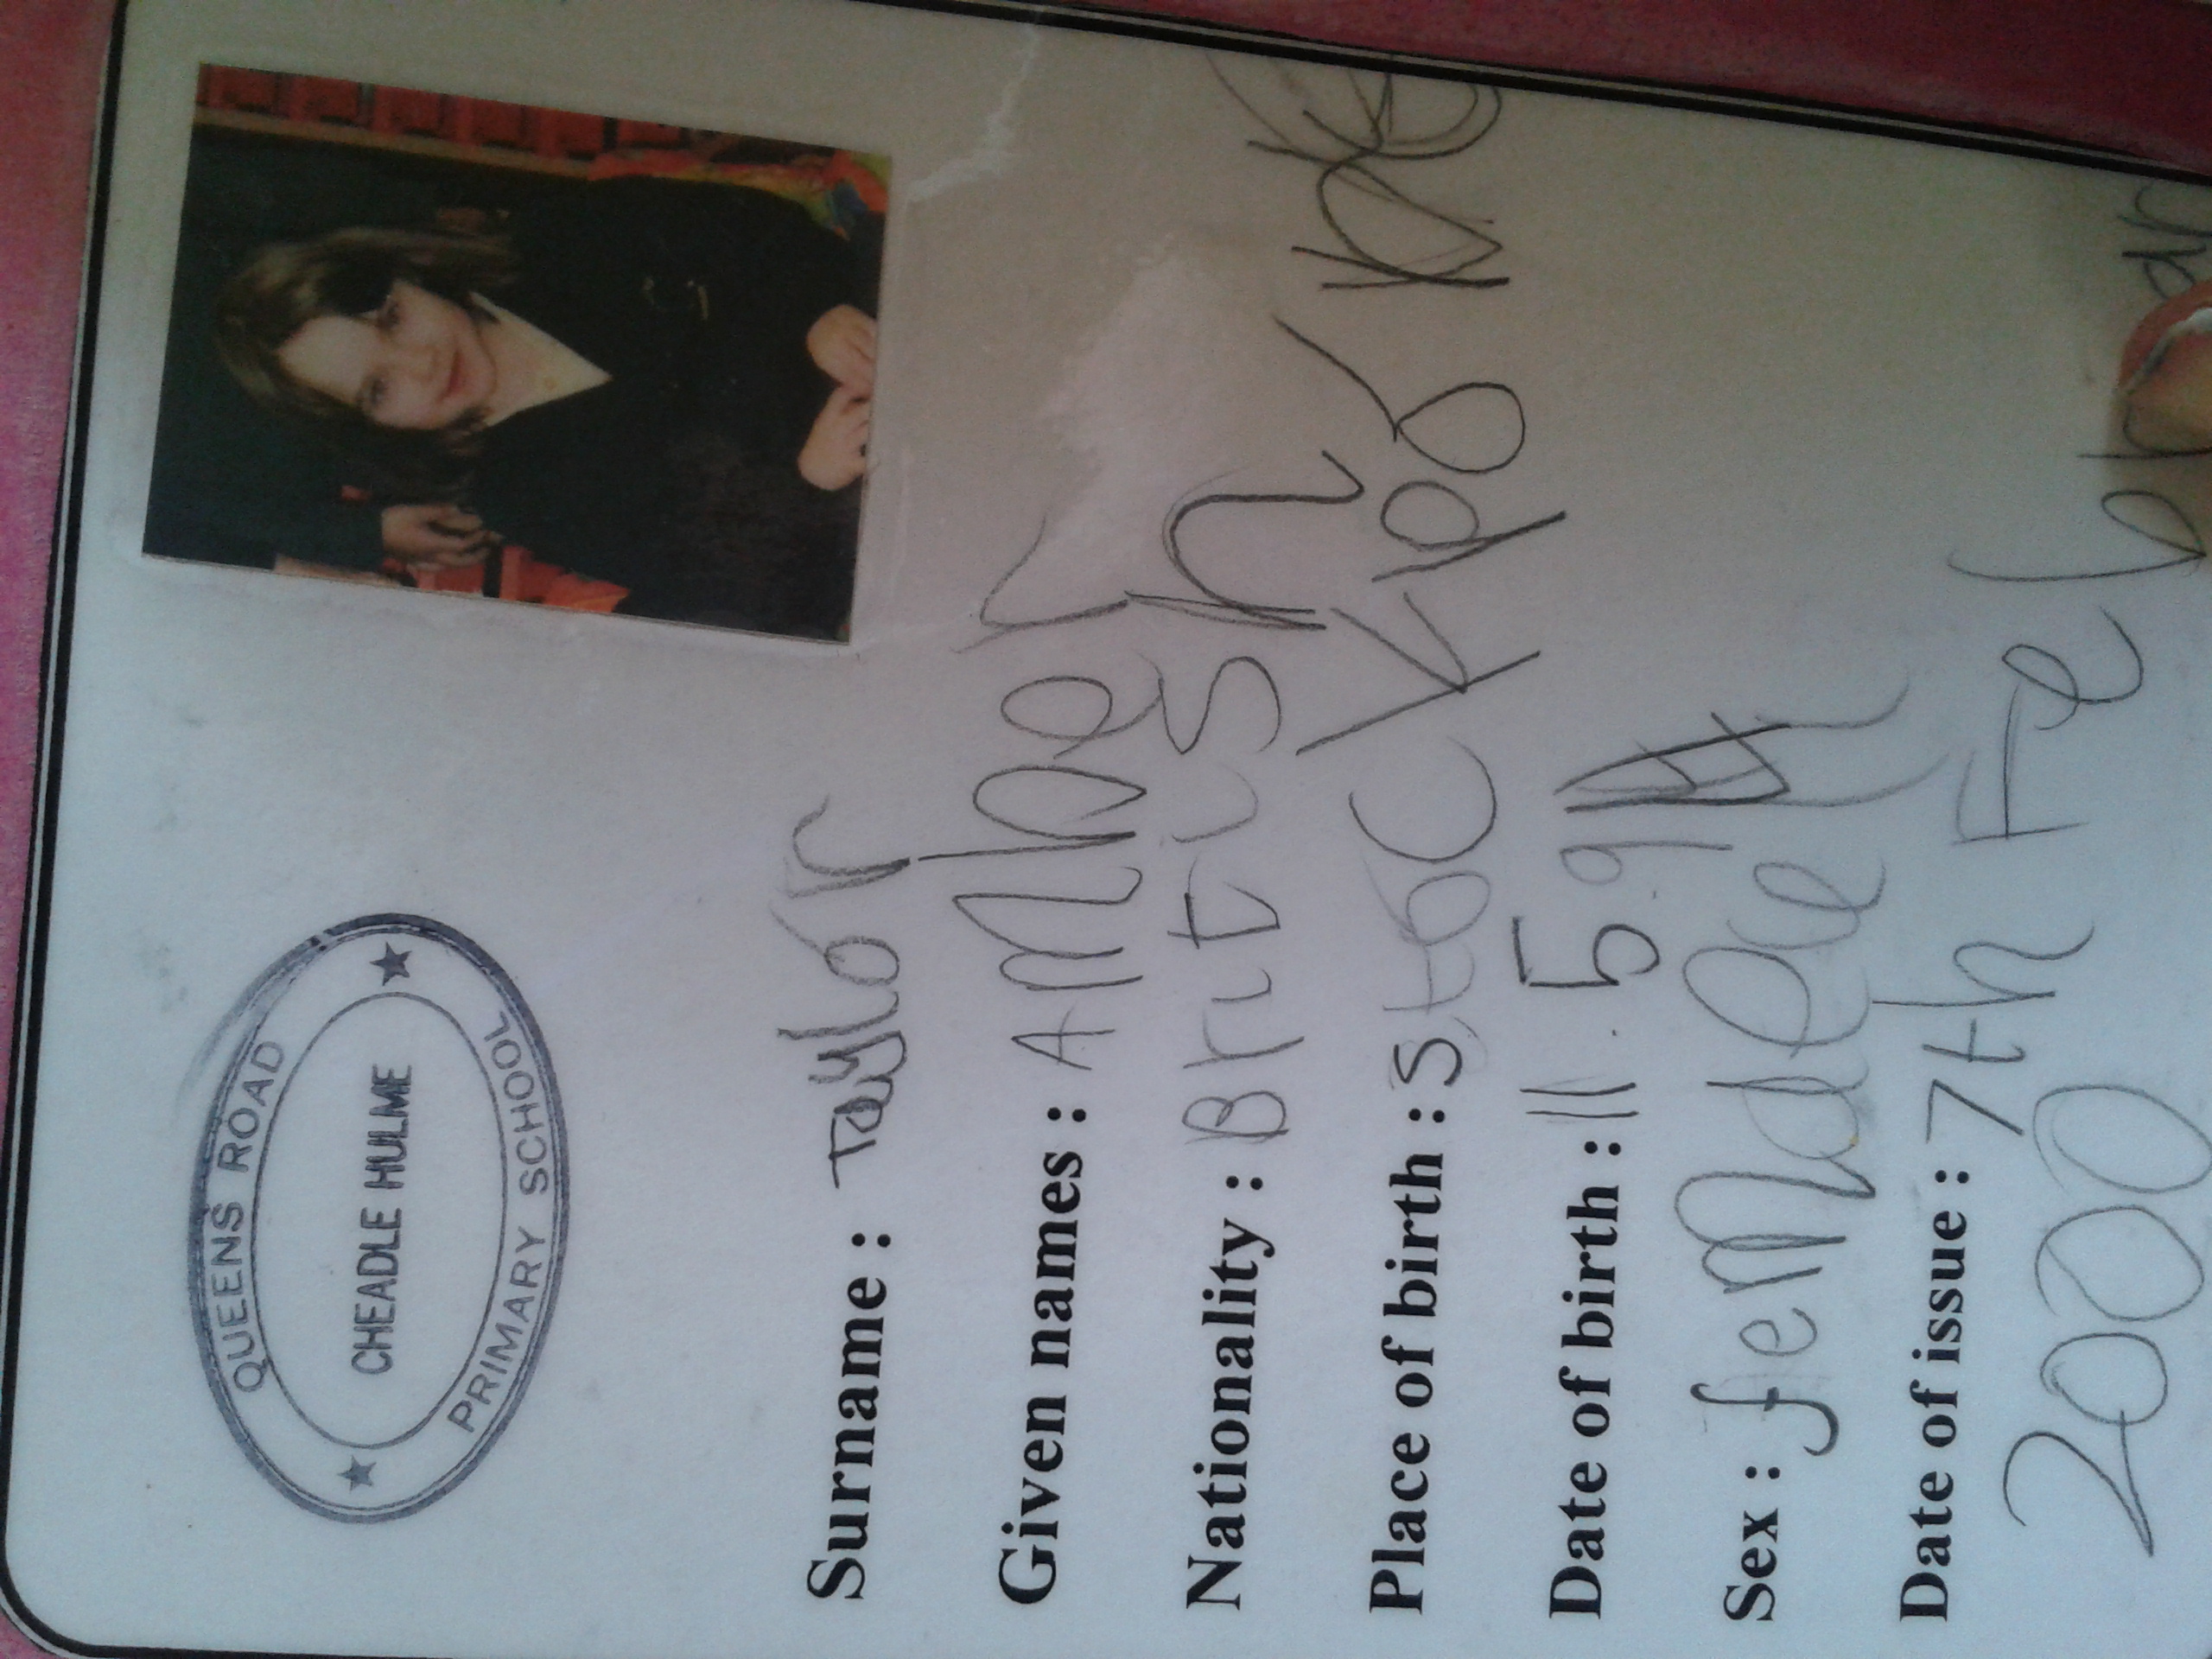 QUEENS ROAD
CHEADLE HULME
PRIMARY SCHOOL
Surname : Taylor
Given names : Amber
Nationality : British
Place of birth :
Date of birth : 11.5.94
Sex : female
Date of issue : 7th
2000